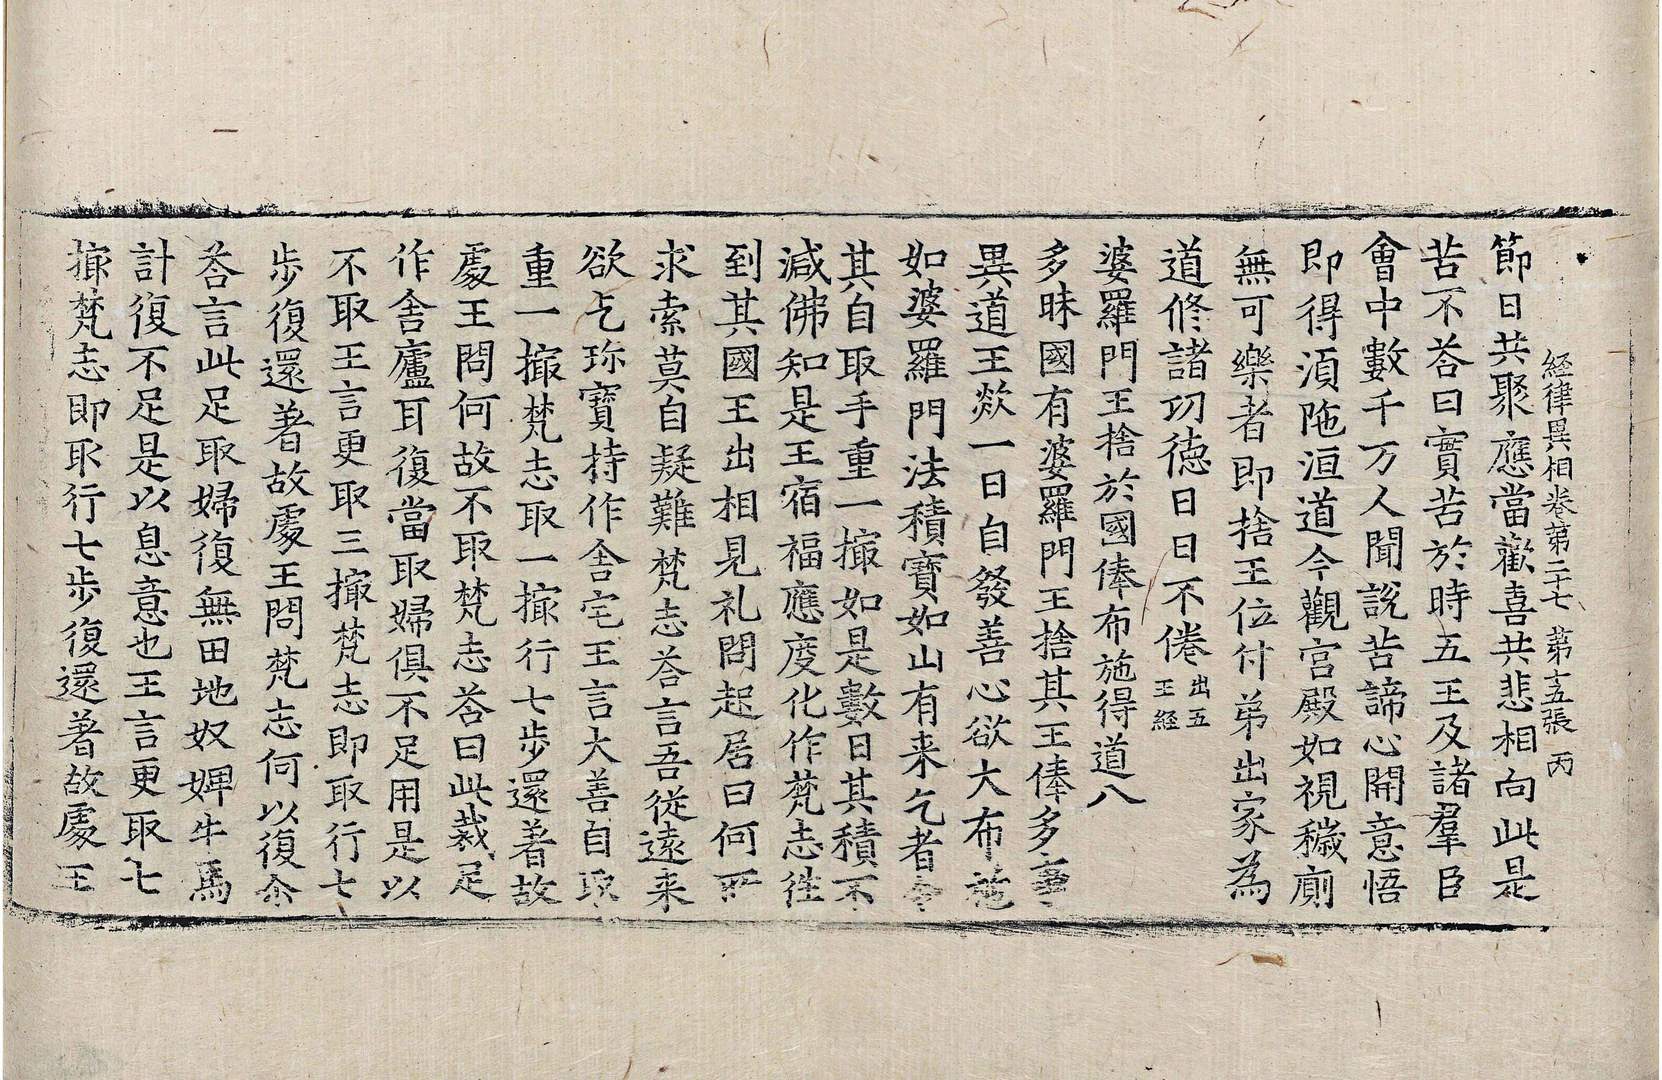 経律異相卷苐二十七 苐十五張 丙
節日共聚應當歡喜共悲相向此是
苦不荅曰實苦於時五王及諸羣臣
會中數千万人聞說苦諦心開意悟
即得湏陁洹道今觀宫殿如視穢廁
無可樂者即捨王位付弟出家為
道修諸㓛德日日不倦出五王經
婆羅門王捨於國俸布施得道八
多昧國有婆羅門王捨其王俸多事
異道王欻一日自發善心欲大布施
如婆羅門法積寶如山有来乞者令
其自取手重一撮如是數日其積不
減佛知是王宿福應度化作梵志徃
到其國王出相見礼問起居曰何所
求索莫自疑難梵志荅言吾従遠来
欲乞珎寶持作舎宅王言大善自取
重一撮梵志取一撮行七步還著故
處王問何故不取梵志荅曰此裁足
作舎廬耳復當取婦俱不足用是以
不取王言更取三撮梵志即取行七
步復還著故處王問梵志何以復尒
荅言此足取婦復無田地奴婢牛馬
計復不足是以息意也王言更取七
撮梵志即取行七步復還著故處王